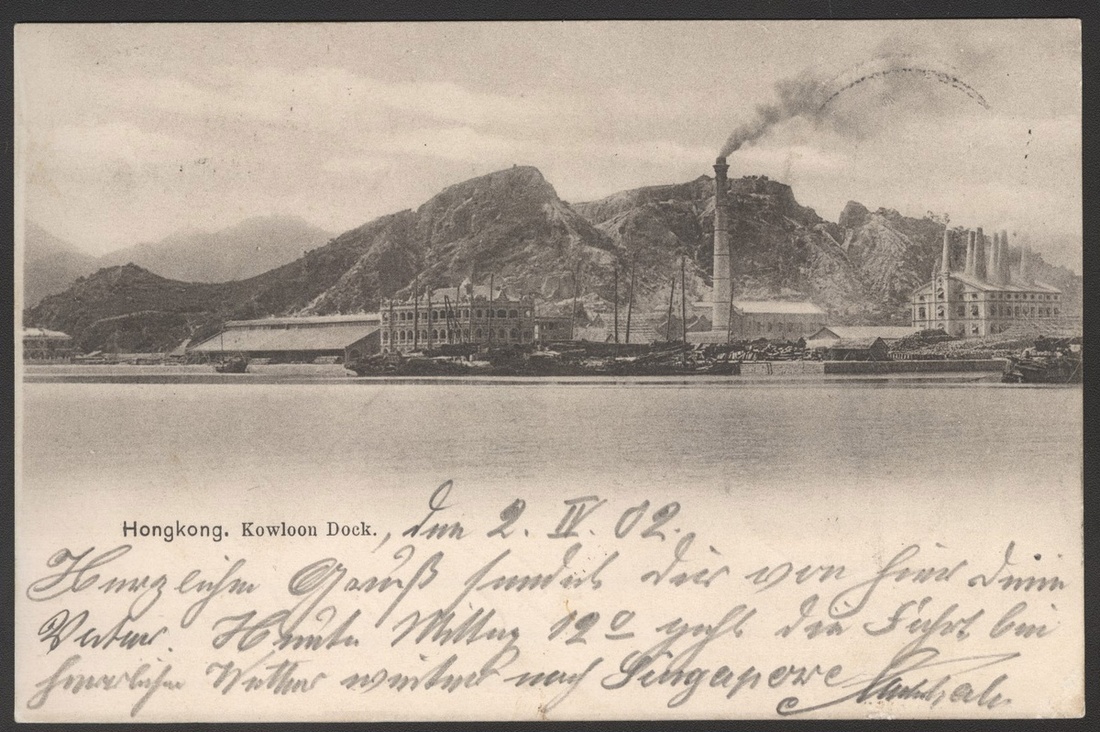 Hongkong. Kowloon Dock., den 2. IV. 02.
Herzlichen Gruß sendet Dir von hier Dein
Vater. Heute Mittag 12º geht die Fahrt bei
herrlichem Wetter weiter nach Singapore